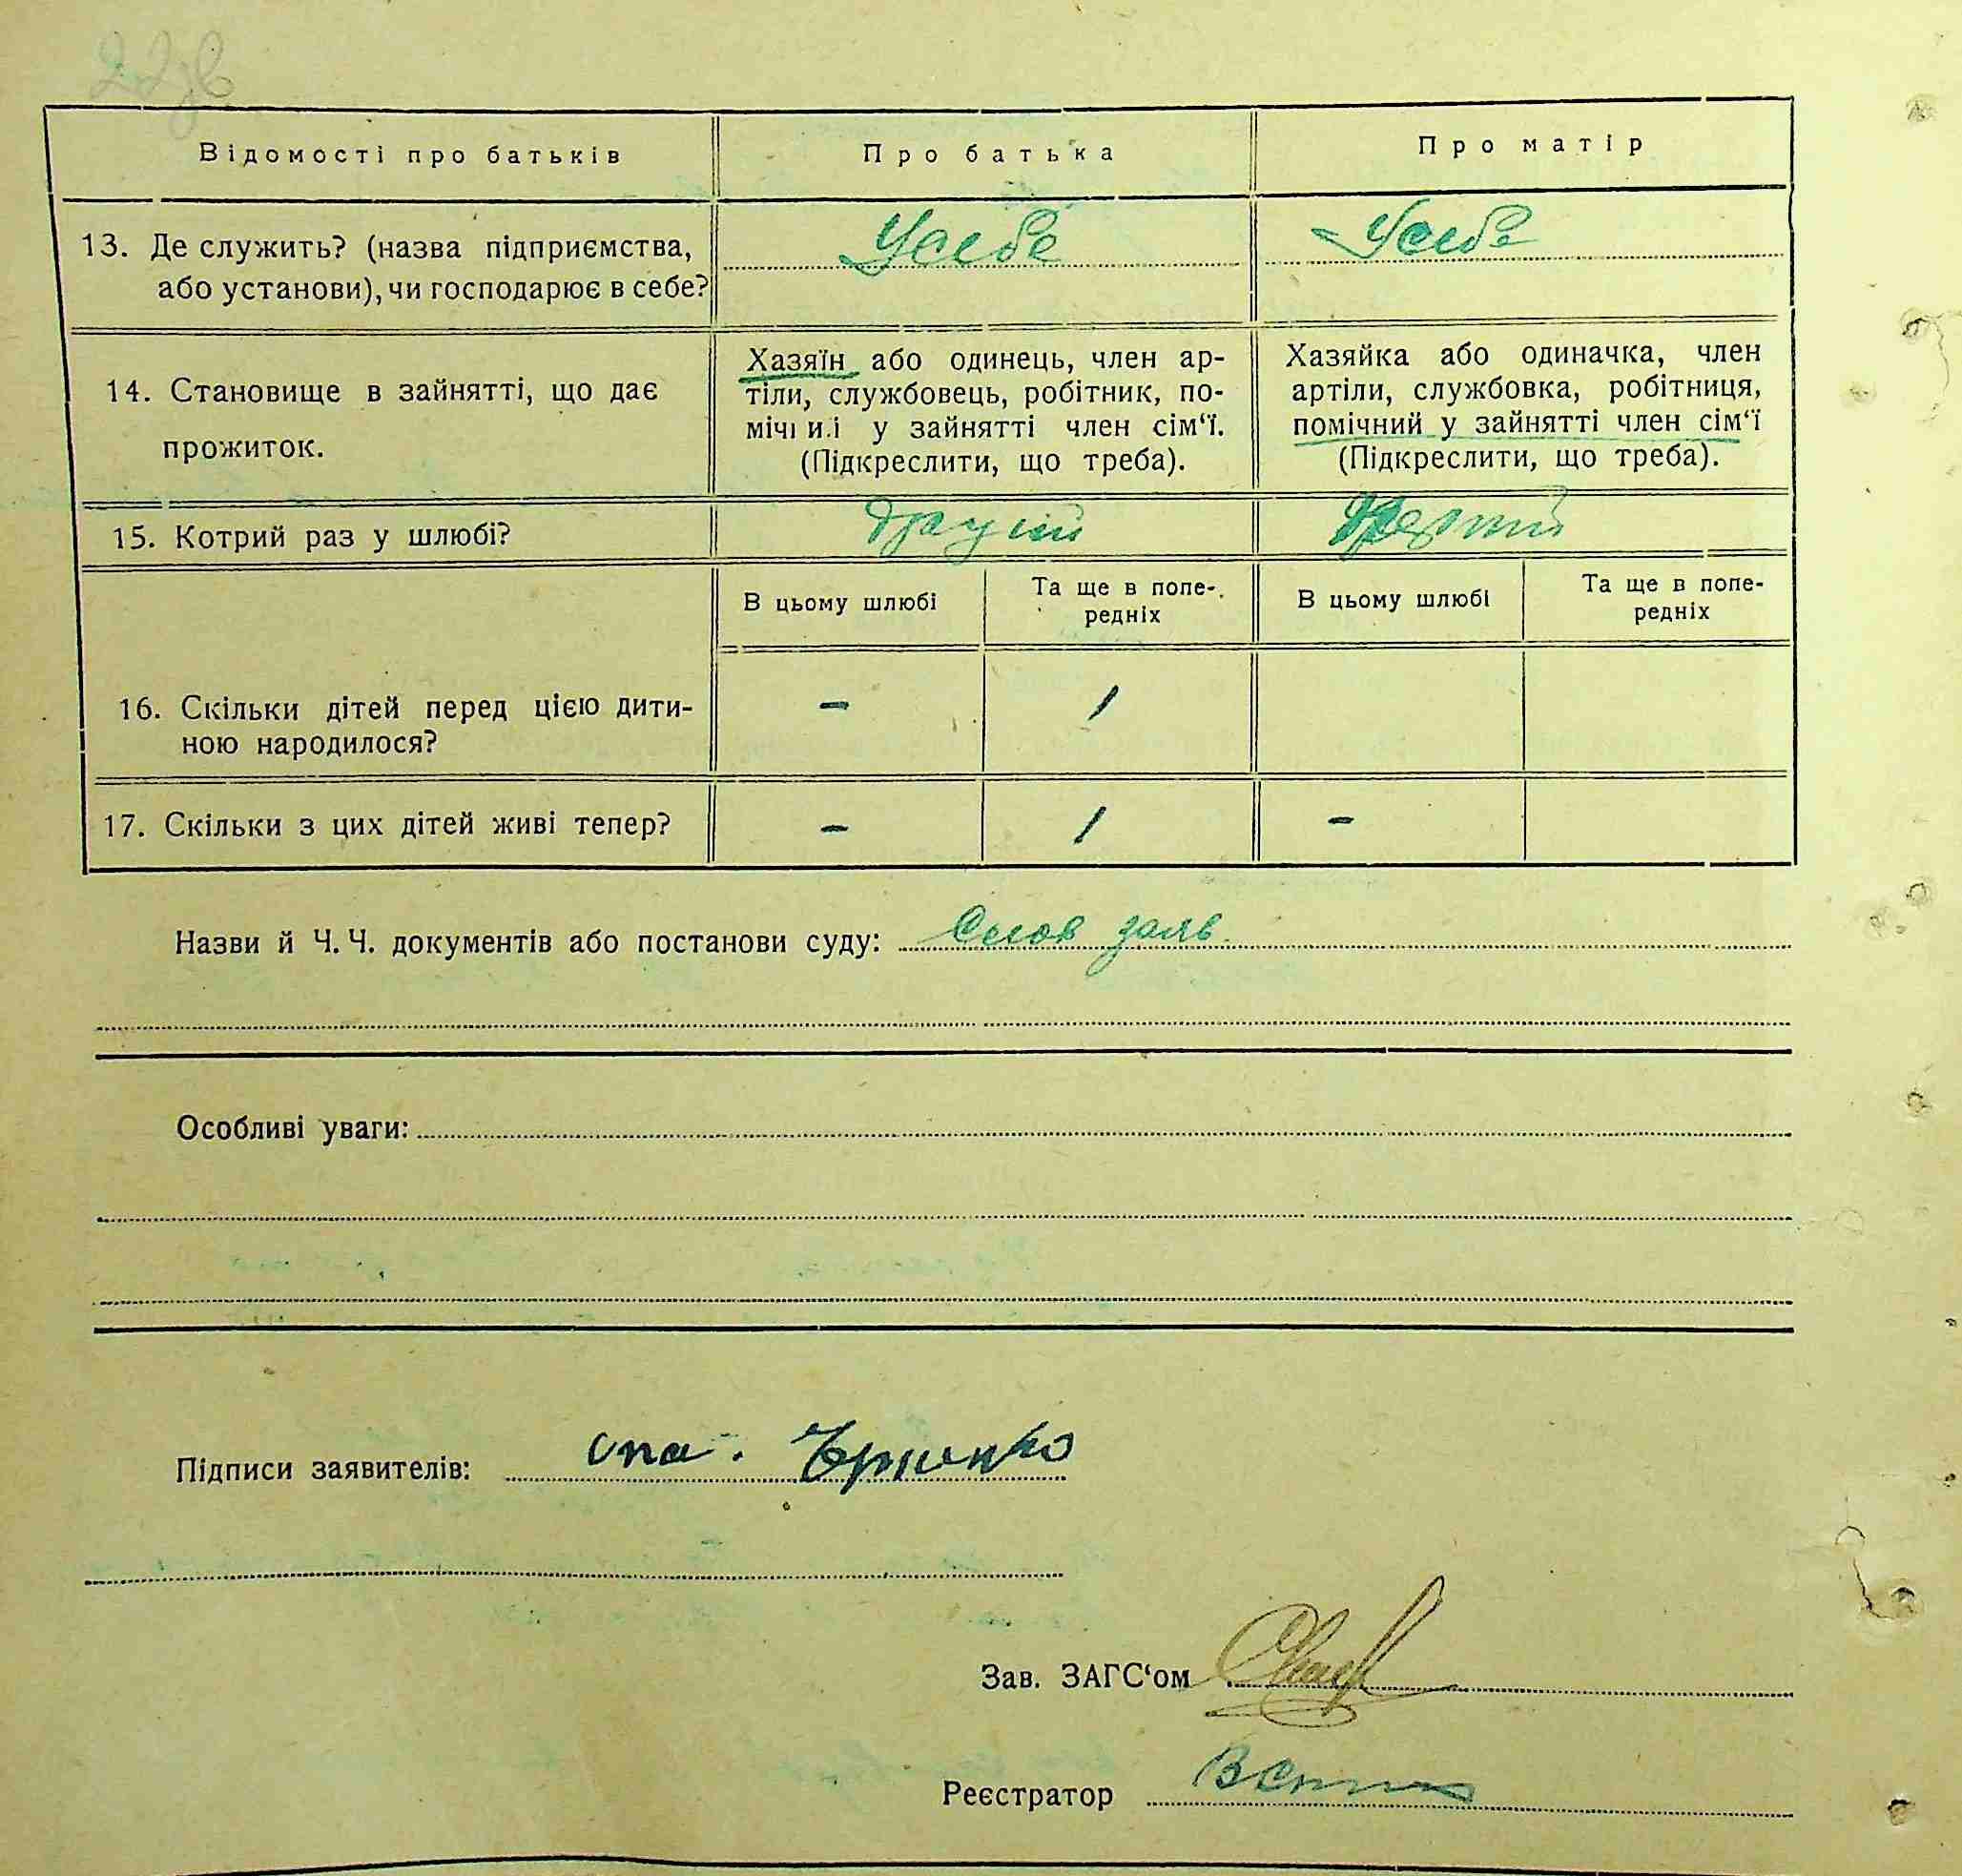 22зв
Відомості про батьків
Про батька
Про матір
13. Де служить? (назва підприємства,
або установи), чи господарює в себе?
У себе
У себе
14. Становище в зайнятті, що дає
прожиток.
Хазяїн або одинець, член ар-
тіли, службовець, робітник, по-
мічний у зайнятті член сім‘ї.
(Підкреслити, що треба).
Хазяйка або одиначка, член
артіли, службовка, робітниця,
помічний у зайнятті член сім‘ї
(Підкреслити, що треба).
15. Котрий раз у шлюбі?
другий
В цьому шлюбі
Та ще в попе-
редніх
В цьому шлюбі
Та ще в попе-
редніх
16. Скільки дітей перед цією дити-
ною народилося?
– 1
17. Скільки з цих дітей живі тепер?
– 1 –
Назви й Ч. Ч. документів або постанови суду: Слов заяв
Особливі уваги:
Підписи заявителів:
Зав. ЗАГС‘ом
Реєстратор